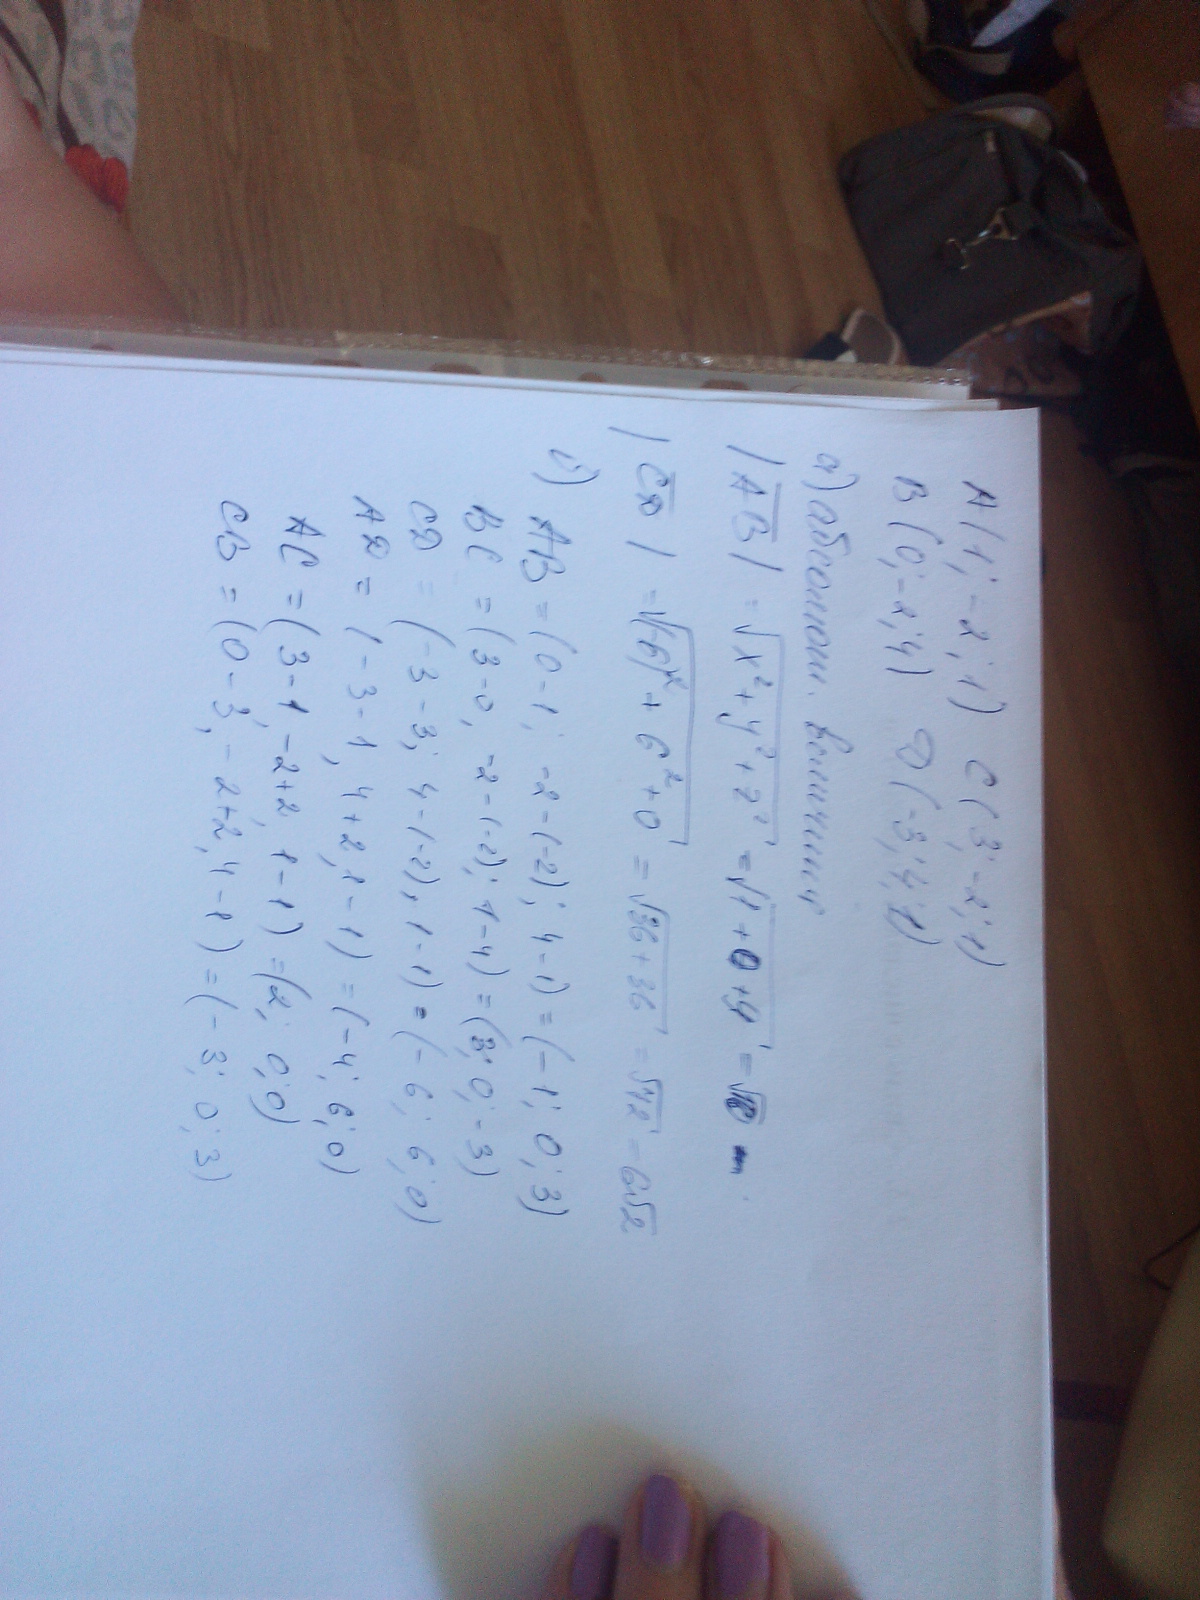 A(1; -2; 1) C(3; -2; 1)
B(0; -2; 4) D(-3; 4; 1)
а) абсолют. величина
|AB| = √x²+y²+z² = √1+0+9 = √10
|CD| = √(-6)²+6²+0 = √36+36 = √72 = 6√2
AB = (0-1; -2-(-2); 4-1) = (-1; 0; 3)
BC = (3-0, -2-(-2); 1-4) = (3; 0; -3)
CD = (-3-3; 4-(-2), 1-1) = (-6; 6; 0)
AD = (-3-1, 4+2, 1-1) = (-4; 6; 0)
AC = (3-1, -2+2, 1-1) = (2; 0; 0)
CB = (0-3; -2+2, 4-1) = (-3; 0; 3)